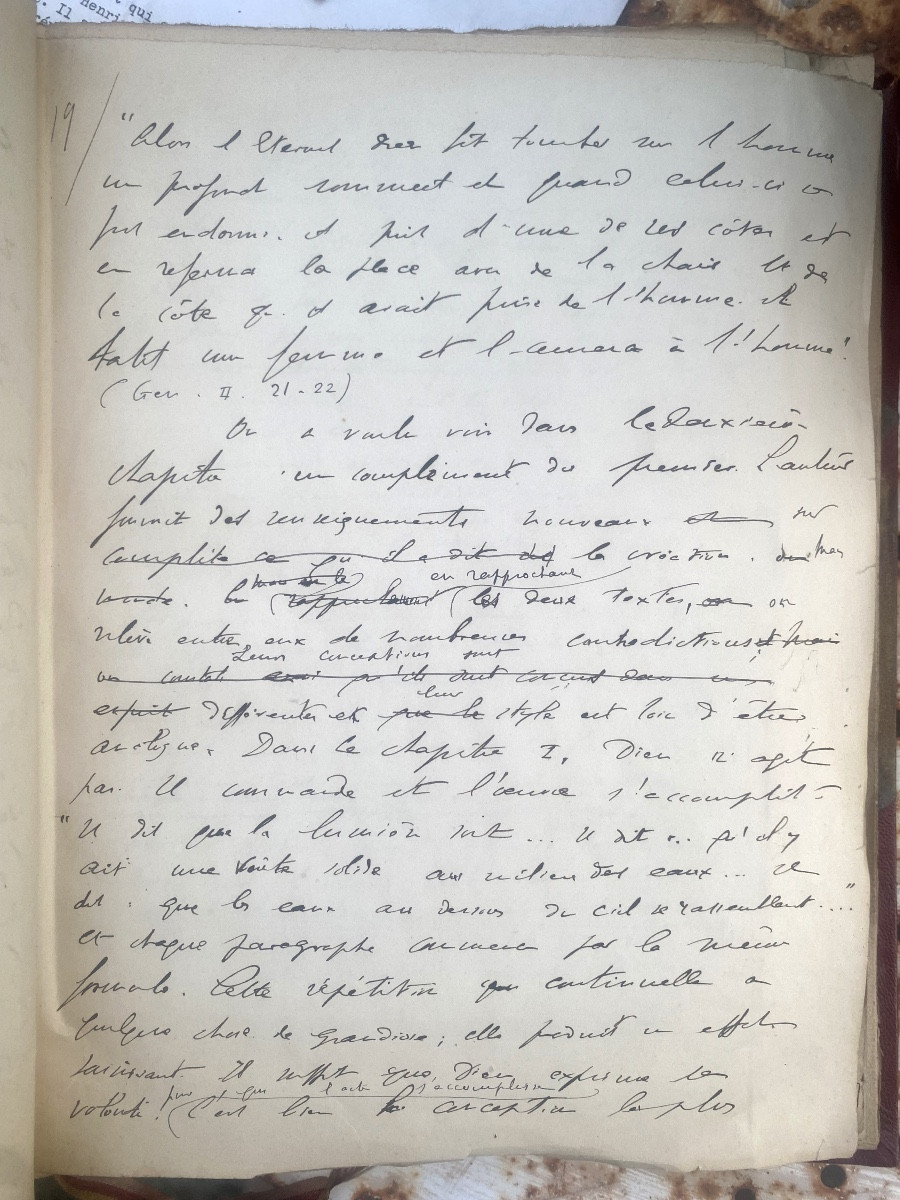 qui
henri
. Il
19/
"Alors l'Eternel dieu fit tomber sur l'homme
un profond sommeil et quand celui-ci
fut endormi. il prit d'une de ses côtes et
en referma la place avec de la chair. Et de
la côte qu'il avait prise de l'homme. il
batit une femme et l'amena à l'homme".
(Gen. II. 21-22)
On a voulu voir dans le deuxième
chapitre un complément du premier. L'auteur
fournit des renseignements nouveaux et sur
complète ce qu'il a dit de la création. Mais
monde. en rapprochant
rapprochement les deux textes, on
relève entre eux de nombreuses contradictions et mais
Leurs conceptions sont
on constate aussi qu'ils sont conçus dans un
leur
esprit différentes et que le style est loin d'être
analogue. Dans le chapitre I, Dieu n'agit
pas. Il commande et l'œuvre s'accomplit -
"Il dit que la lumière soit ... Il dit ... qu'il y
ait une voûte solide au milieu des eaux ... Il
dit : que les eaux au dessous du ciel se rassemblent ...."
Et chaque paragraphe commence par la même
formule. Cette répétition continuelle a
quelque chose de grandiose ; elle produit un effet
saisissant. Il suffit que Dieu exprime sa
pour que l'acte s'accomplisse
volonté ! C'est bien la conception la plus